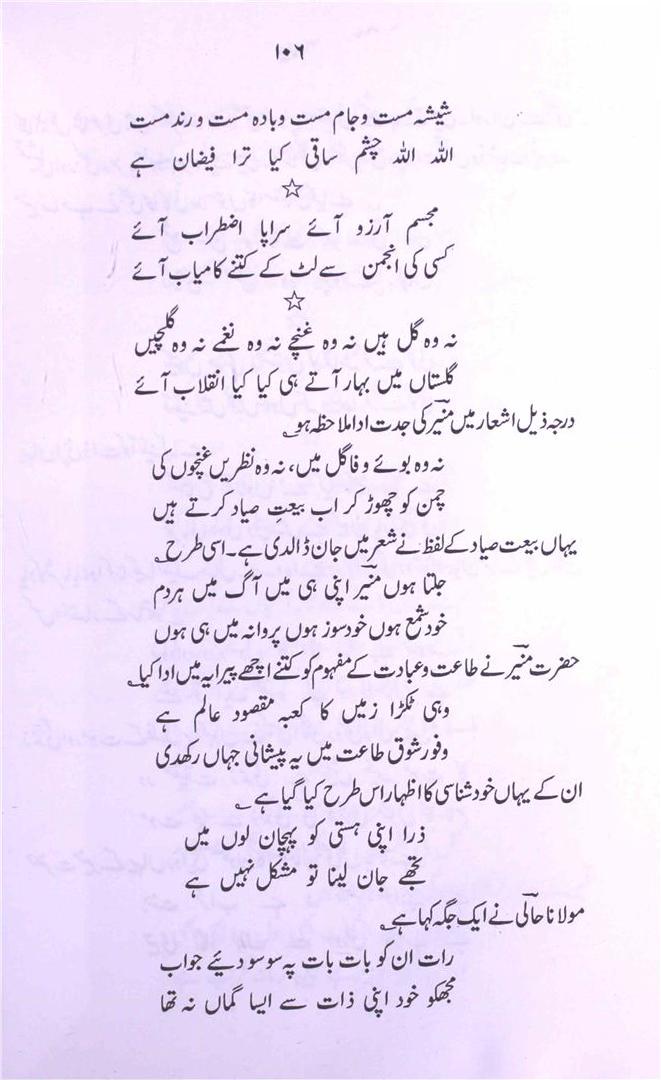 ۱۰۶
شیشہ مست و جام مست و بادہ مست و رند مست
اللہ اللہ چشم ساقی کیا ترا فیضان ہے
☆
مجسم آرزو آئے سراپا اضطراب آئے
کسی کی انجمن سے لٹ کے کتنے کامیاب آئے
☆
نہ وہ گل ہیں نہ وہ غنچے نہ وہ نغمے نہ وہ گلچیں
گلستاں میں بہار آتے ہی کیا کیا انقلاب آئے
درجہ ذیل اشعار میں منیرؔ کی جدت ادا ملاحظہ ہو۔
نہ وہ بوئے وفا گل میں، نہ وہ نظریں غنچوں کی
چمن کو چھوڑ کر اب بیعت صیاد کرتے ہیں
یہاں بیعت صیاد کے لفظ نے شعر میں جان ڈالدی ہے۔ اسی طرح ؎
جلتا ہوں منیرؔ اپنی ہی میں آگ میں ہردم
خود شمع ہوں خود سوز ہوں پروانہ میں ہی ہوں
حضرت منیرؔ نے طاعت و عبادت کے مفہوم کو کتنے اچھے پیرایہ میں ادا کیا ؎
وہی ٹکڑا زمیں کا کعبہ مقصود عالم ہے
وفور شوق طاعت میں یہ پیشانی جہاں رکھدی
ان کے یہاں خود شناسی کا اظہار اس طرح کیا گیا ہے ؎
ذرا اپنی ہستی کو پہچان لوں میں
تجھے جان لینا تو مشکل نہیں ہے
مولانا حالیؔ نے ایک جگہ کہا ہے ؎
رات ان کو بات بات پہ سو سو دئیے جواب
مجھکو خود اپنی ذات سے ایسا گماں نہ تھا